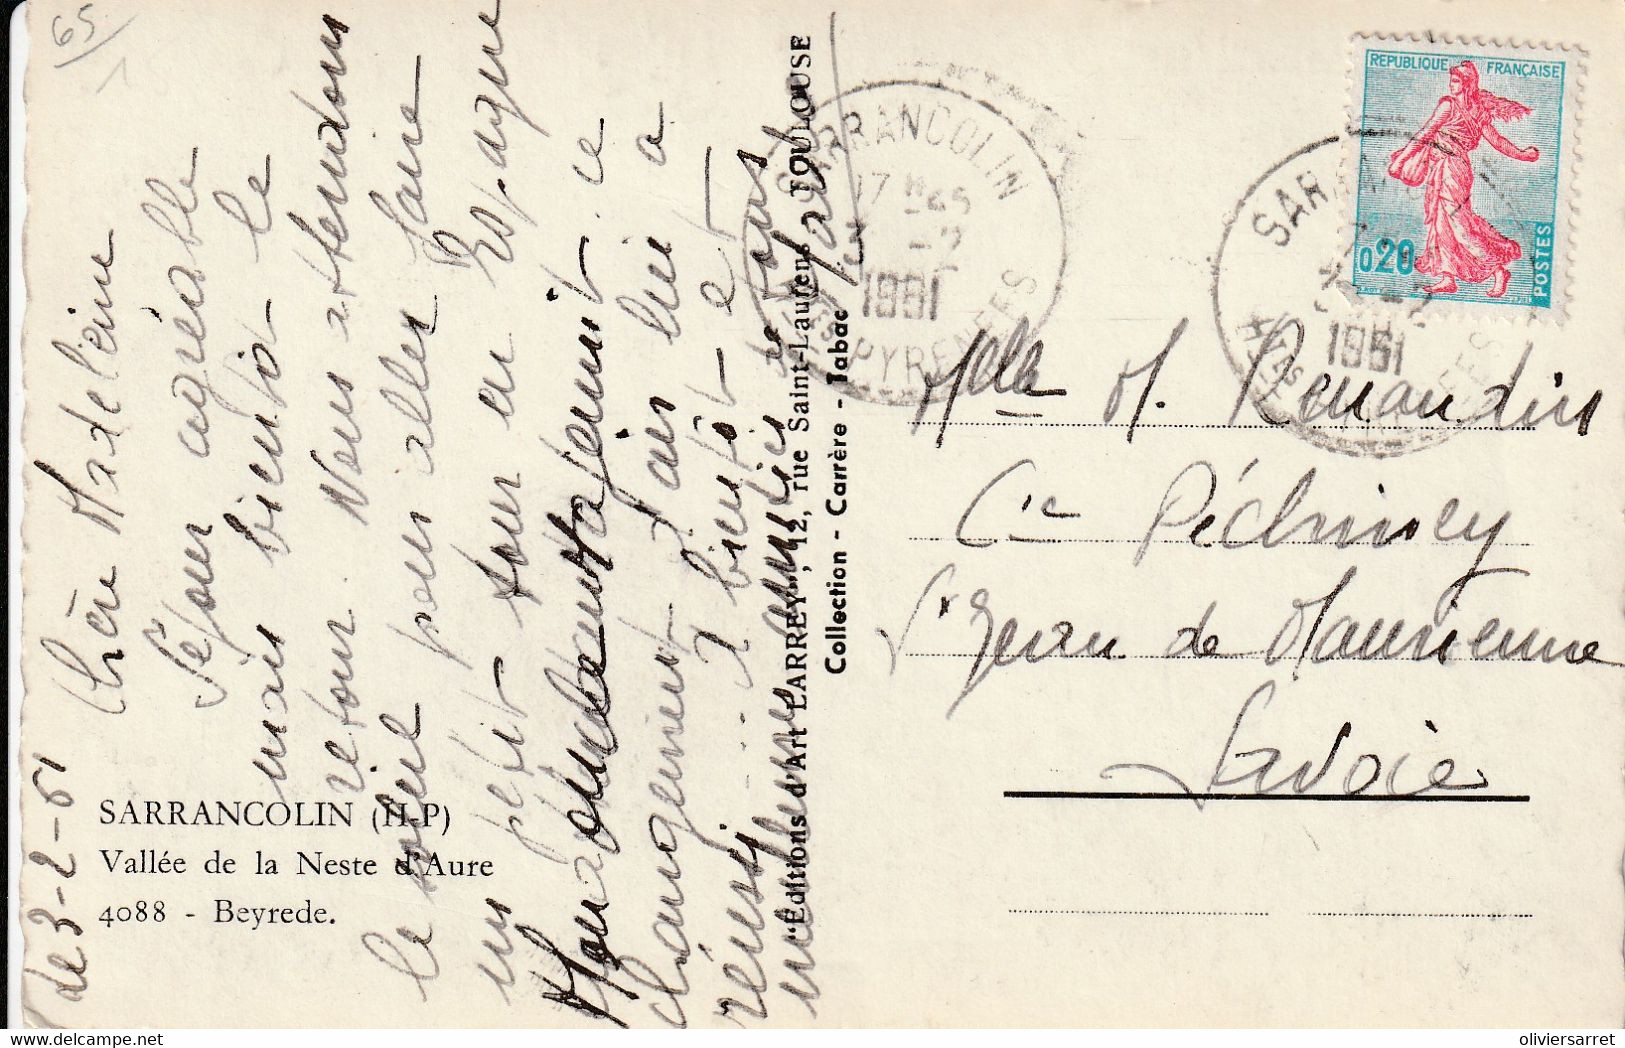 65
de 3-2-61
Chère Madeleine
Séjour agréable
mais bientôt le
retour. Nous attendons
le soleil pour aller faire
un petit tour en Espagne
ce
changement d'air lui a
réussi à bientôt et
de tous
SARRANCOLIN (H-P)
Vallée de la Neste d'Aure
4088 - Beyrede.
"Éditions d'Art LARREY", 12, rue Saint-Laurens, TOULOUSE
Collection - Carrère - Tabac
SARRANCOLIN
17 H 45
1961
HTES PYRENEES
REPUBLIQUE FRANÇAISE
0,20
POSTES
SARRANCOLIN
1961
HTES PYRENEES
Mlle M. Renaudin
Cie Péchiney
St Jean de Maurienne
Savoie
oliviersarret